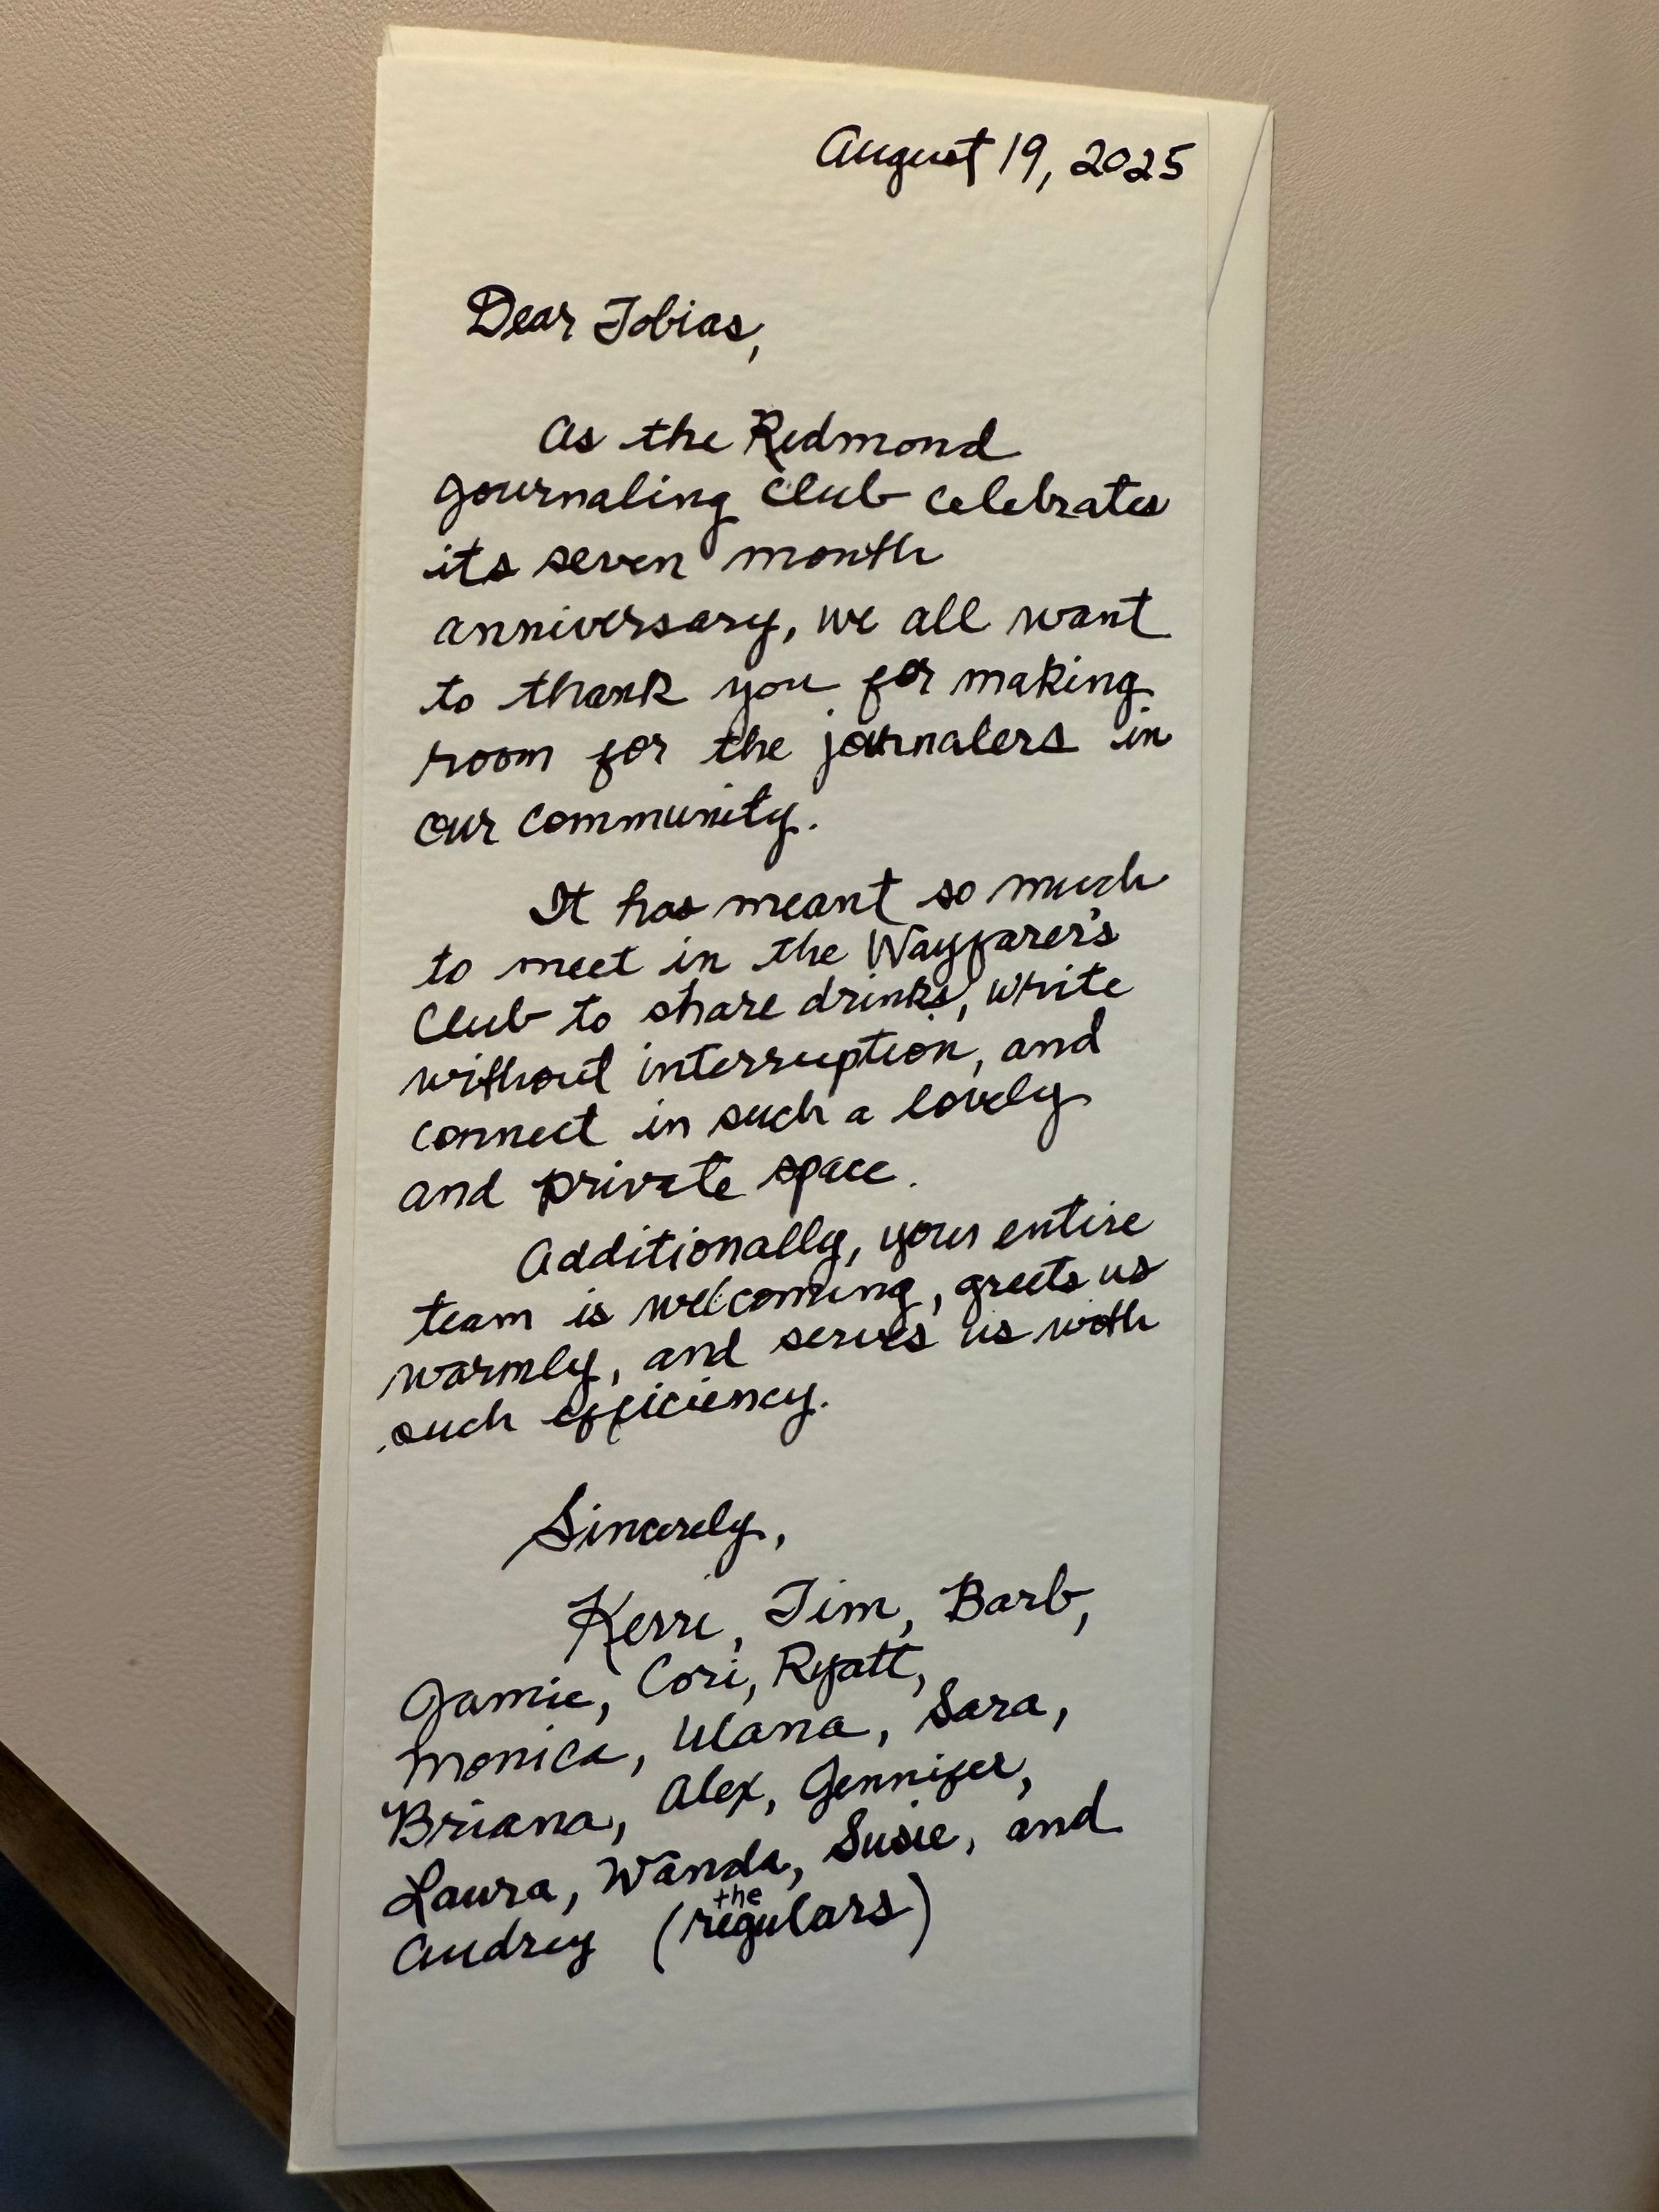 August 19, 2025
Dear Tobias,
As the Redmond
Journaling Club celebrates
its seven month
anniversary, we all want
to thank you for making
room for the journalers in
our community.
It has meant so much
to meet in the Wayfarer's
Club to share drinks, write
without interruption, and
connect in such a lovely
and private space.
Additionally, your entire
team is welcoming, greets us
warmly, and serves us with
such efficiency.
Sincerely,
Kerri, Tim, Barb,
Jamie, Cori, Ryatt,
Monica, Ulana, Sara,
Briana, Alex, Jennifer,
Laura, Wanda, Susie, and
Audrey (the regulars)